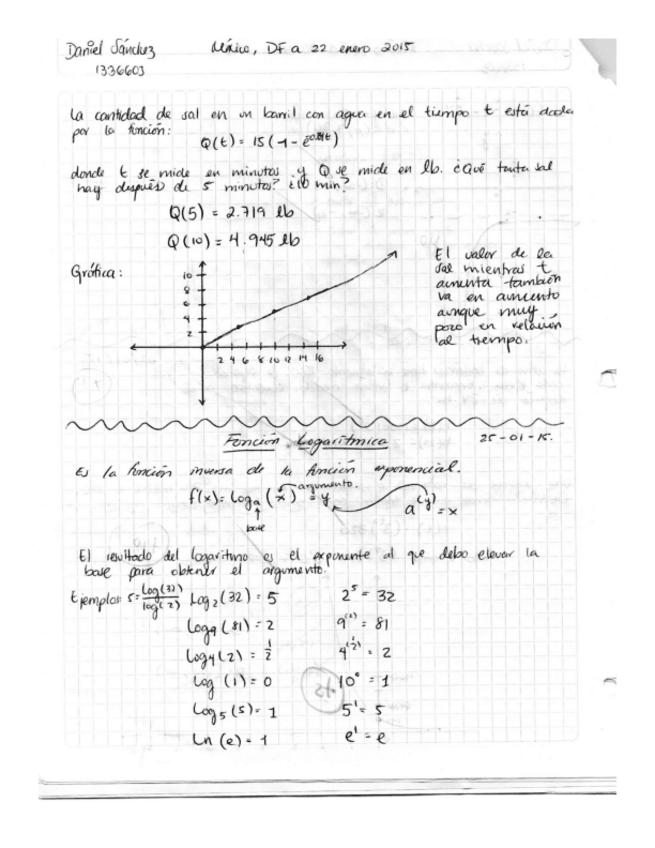 Daniel Sánchez México, DF a 22 enero 2015
1336603
La cantidad de sal en un barril con agua en el tiempo t está dada
por la función:
Q(t) = 15(1 - e^-0.04t)
donde t se mide en minutos y Q se mide en lb. ¿Qué tanta sal
hay después de 5 minutos? ¿10 min?
Q(5) = 2.719 lb
Q(10) = 4.945 lb
Gráfica:
10
8
6
4
2
2 4 6 8 10 12 14 16
El valor de la
sal mientras t
aumenta también
va en aumento
aunque muy
poco en relación
al tiempo.
Función Logarítmica 25-01-15.
Es la función inversa de la función exponencial.
f(x) = Loga (x) = y
argumento.
base
a^(y) = x
El resultado del logaritmo es el exponente al que debo elevar la
base para obtener el argumento.
Ejemplos 5 = Log(32)/log(2) Log2(32) = 5 2^5 = 32
Log9(81) = 2 9^(2) = 81
Log4(2) = 1/2 4^(1/2) = 2
Log (1) = 0 10^0 = 1
Log5(5) = 1 5^1 = 5
Ln (e) = 1 e^1 = e